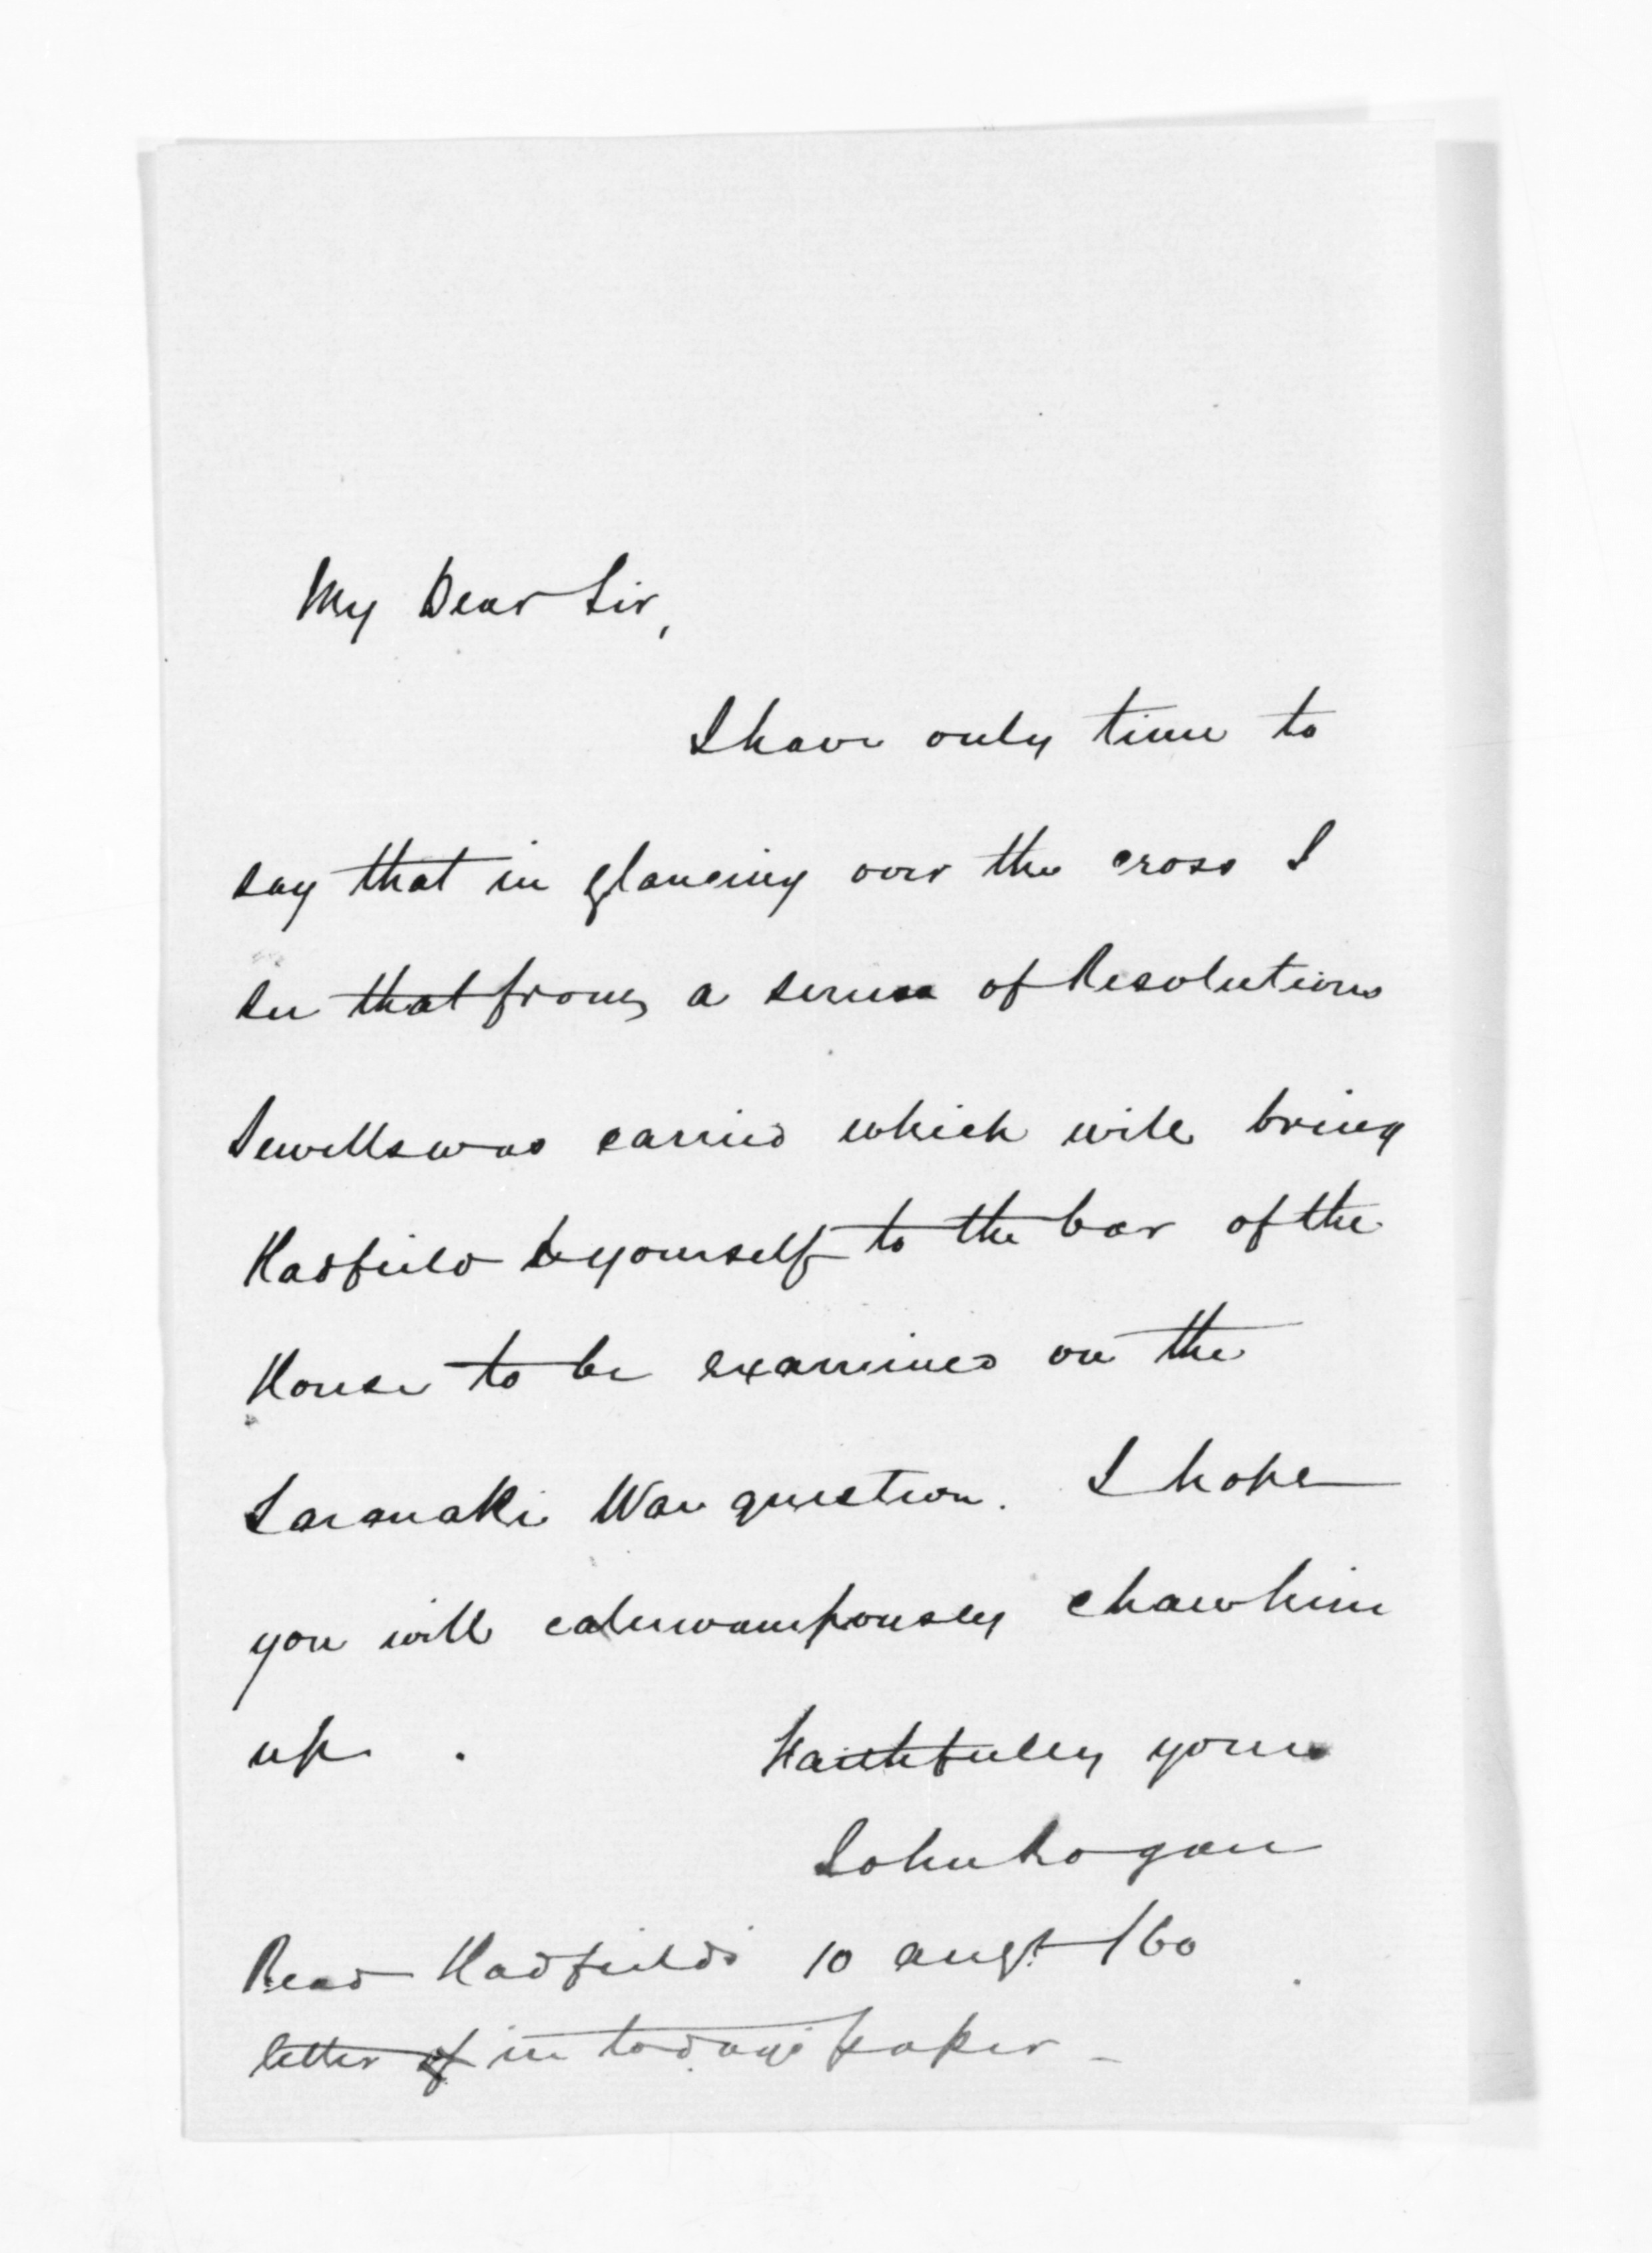 My Dear Sir,
I have only time to
say that in glancing over the cross I
see that from a series of Resolutions
Sewells was carried which will bring
Hadfield & yourself to the bar of the
House to be examined on the
Taranaki War question. I hope
you will catuwampously chaw him
up.
Faithfully yours
John Logan
Read Hadfield's 10 augt /60
letter in todays paper -